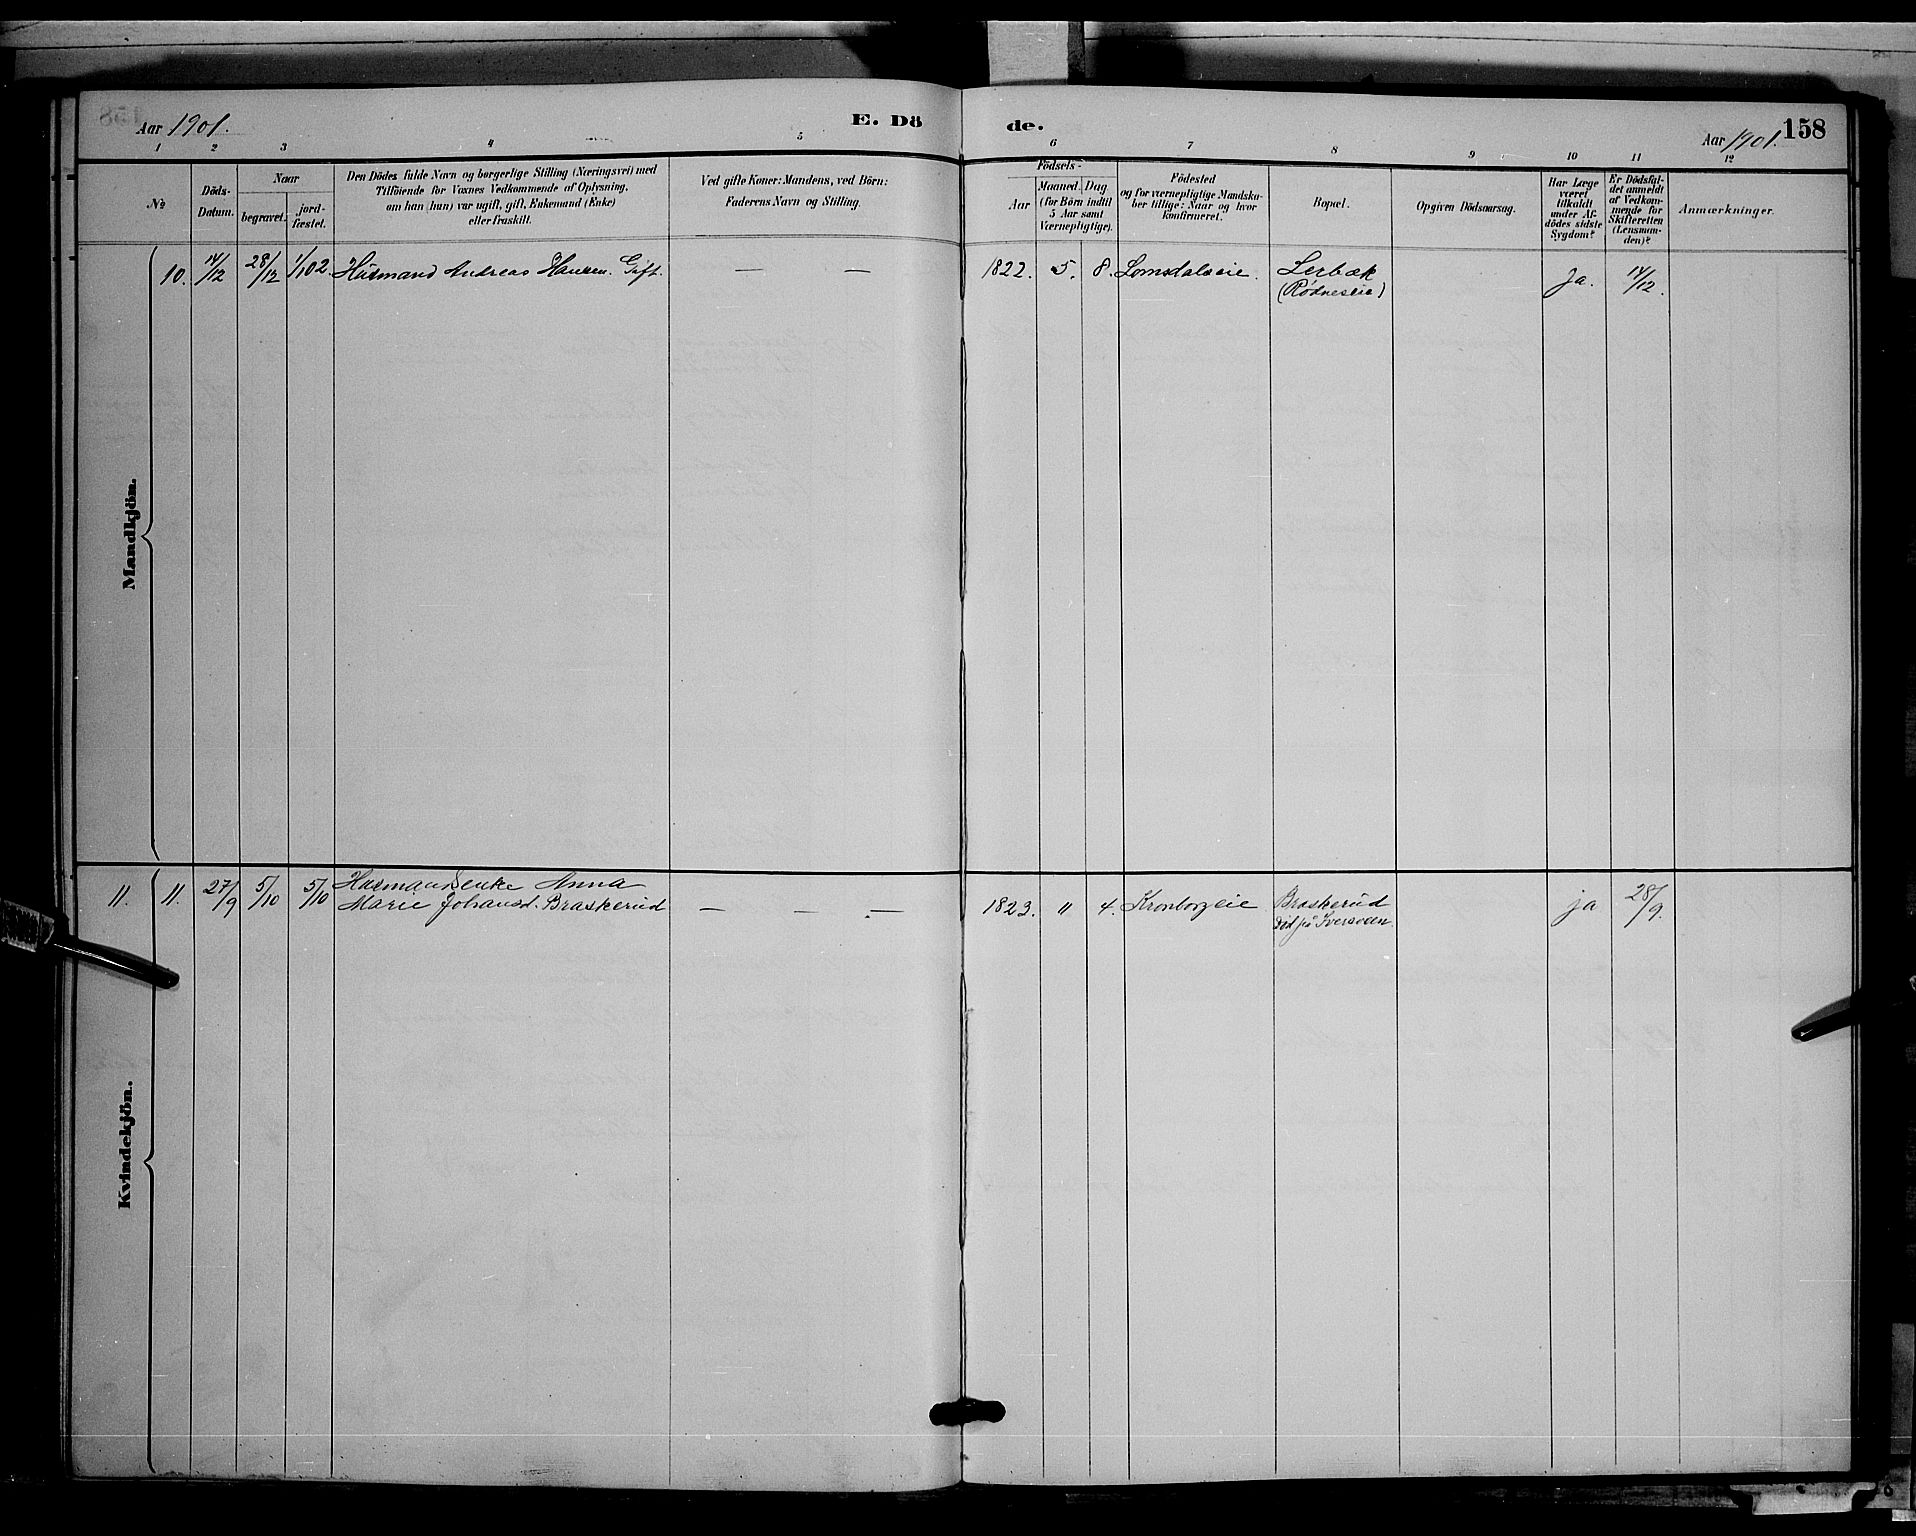 Aar 1901.
E. Dö
de.
Aar 1901.
158
1 2 3 4 5 6 7 8 9 10 11 12
No
Döds-
Datum.
Naar
begravet.
jord-
fæstet.
Den Dödes fulde Navn og borgerlige Stilling (Næringsvei) med
Tilföiende for Voxnes Vedkommende af Oplysning,
om han (hun) var ugift, gift, Enkemand (Enke)
eller fraskilt.
Ved gifte Koner: Mandens, ved Börn:
Faderens Navn og Stilling.
Födsels-
Aar
Maaned. Dag
(for Börn indtil
5 Aar samt
Værnepligtige).
Födested
og for værnepligtige Mandska-
ber tillige: Naar og hvor
konfirmeret.
Bopæl.
Opgiven Dödsaarsag.
Har Læge
været
tilkaldt
under Af-
dödes sidste
Sygdom?
Er Dödsfal-
det anmeldt
af Vedkom-
mende for
Skifteretten
(Lensman-
den)?
Anmærkninger.
Mandkjön.
10. 14/12 28/12 1/1 02 Husmand Andreas Hansen. Gift. — — 1822. 5. 8. Lomsdalseie. Lerbæk (Rødneseie) Ja. 14/12.
Kvindekjön.
11. 11. 27/9 5/10 5/10 Husmandsenke Anna
Marie Johansd. Braskerud — — — 1823. " 4. Kronborgeie Braskerud ja 28/9.
død på Sversveen.